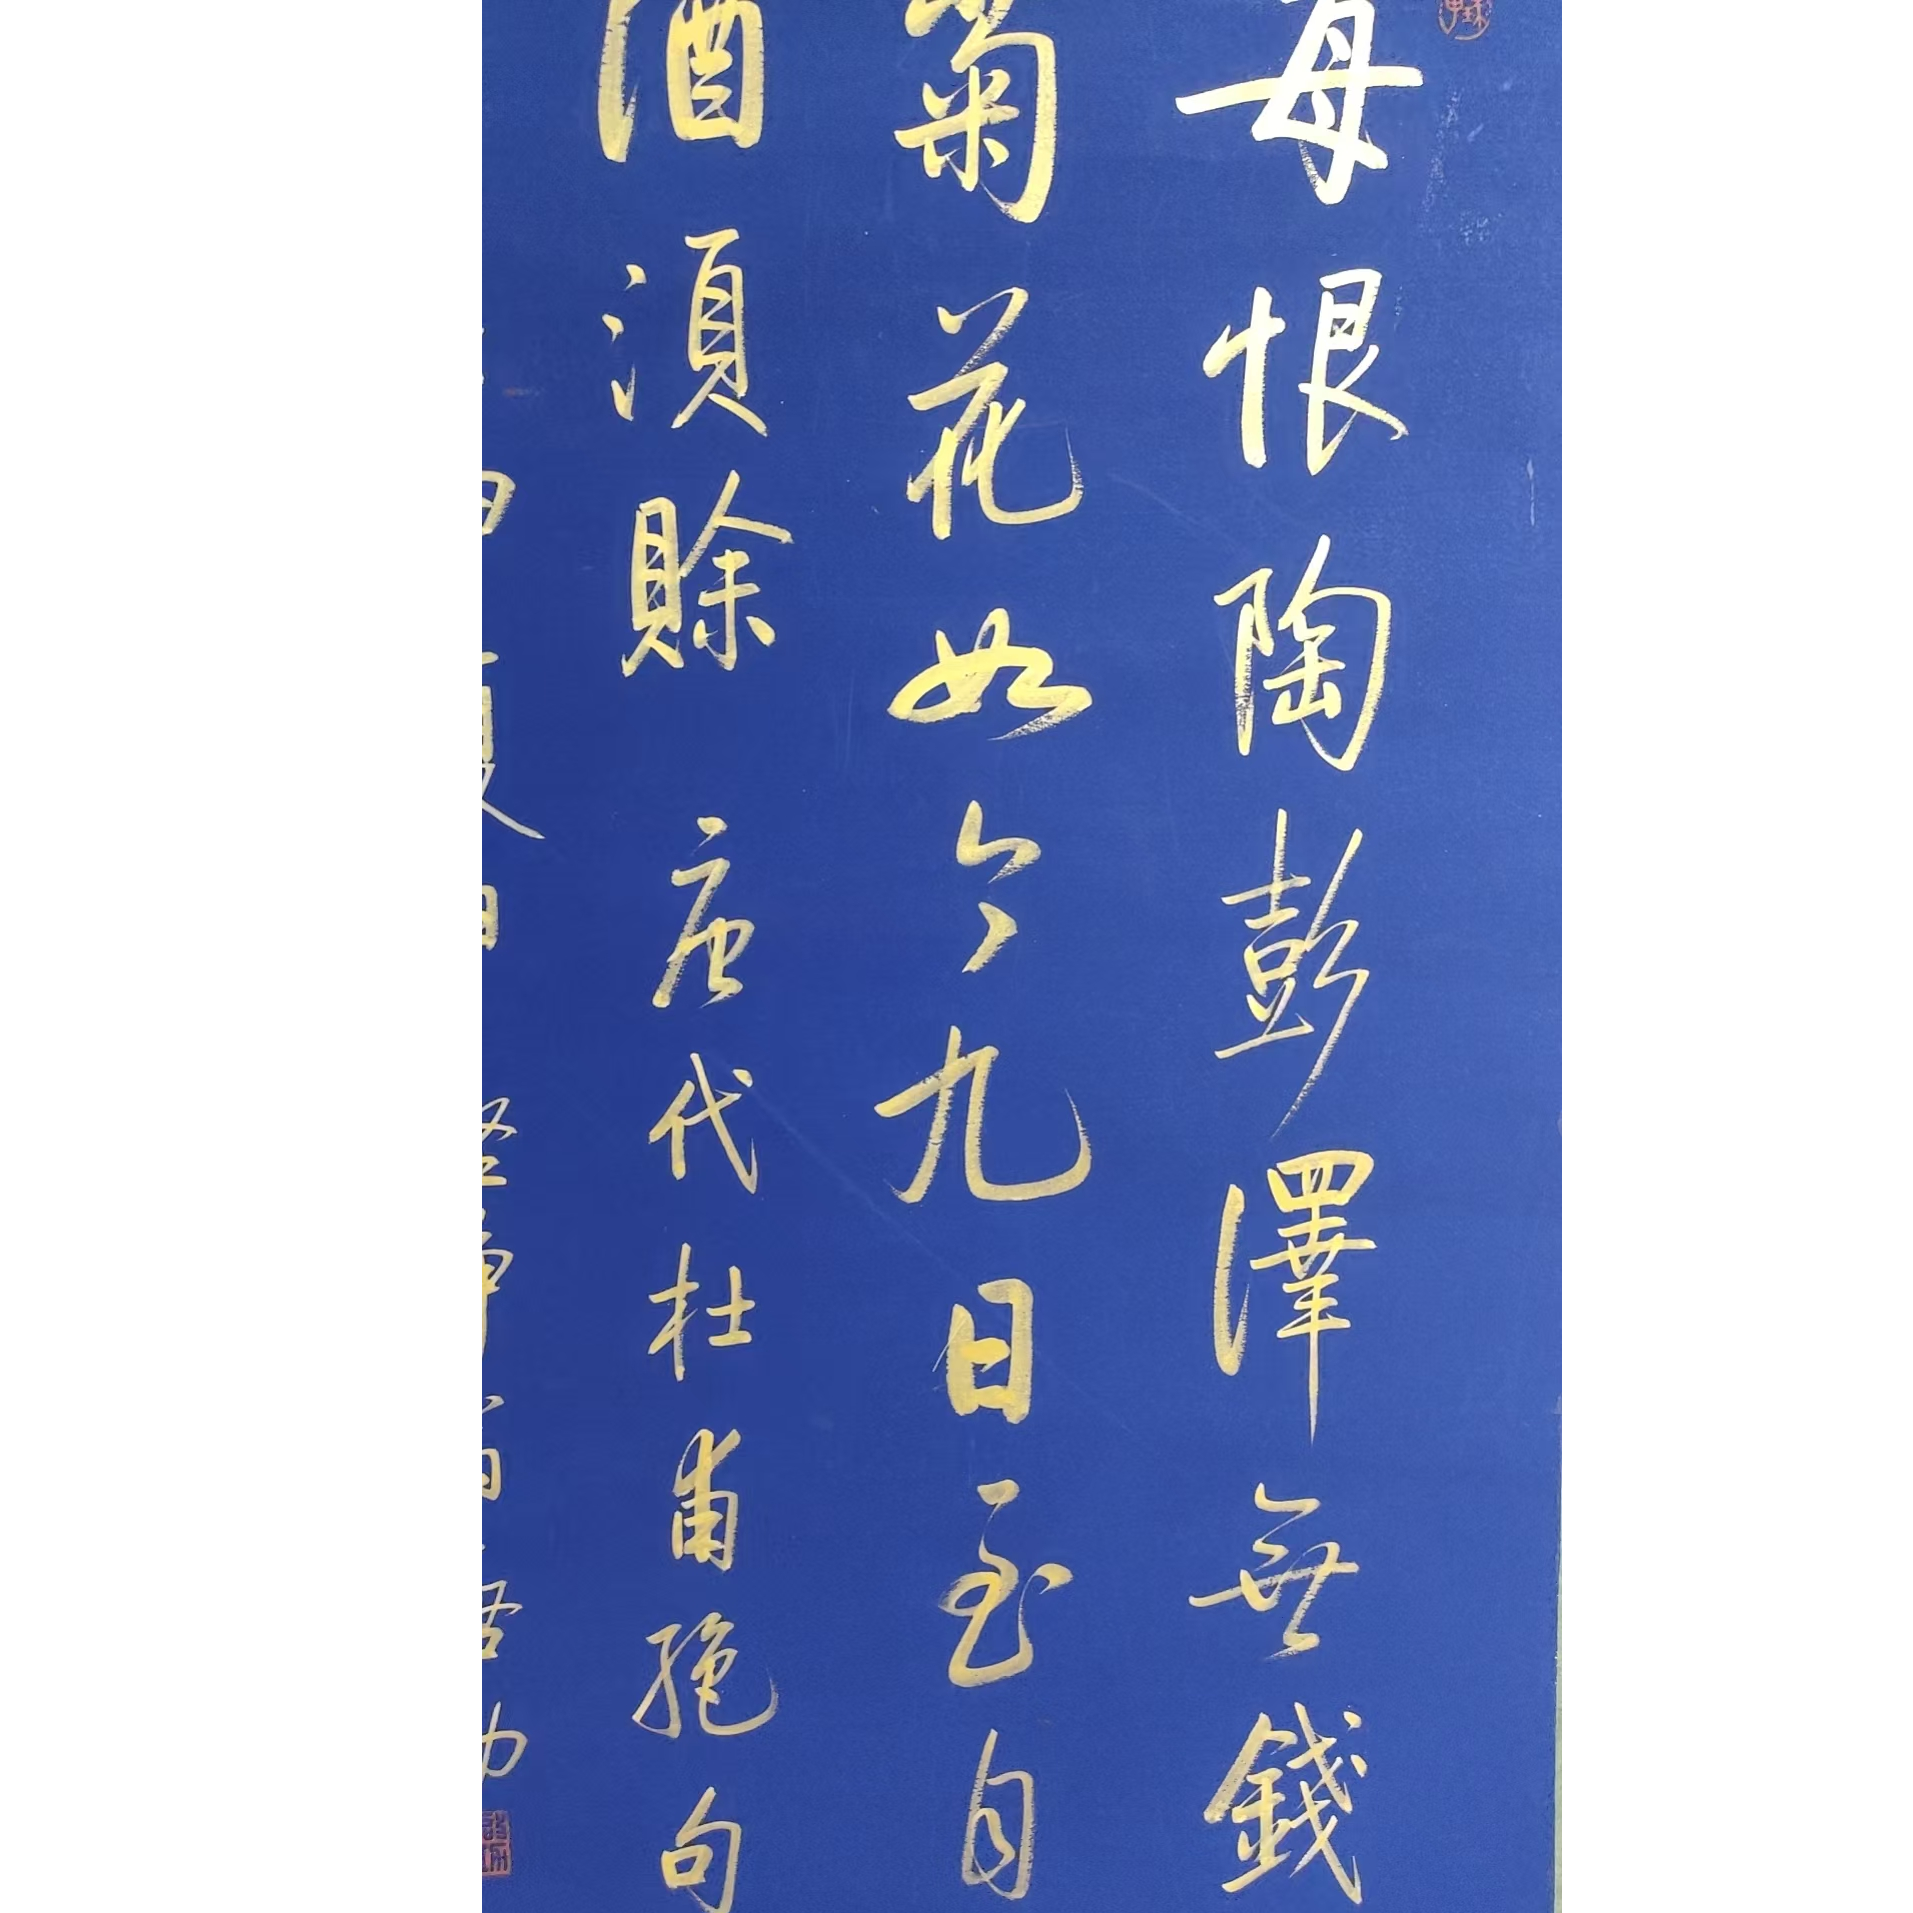 每恨陶彭澤無錢
菊花如今九日至自
酒湏賒 唐代杜甫絶句